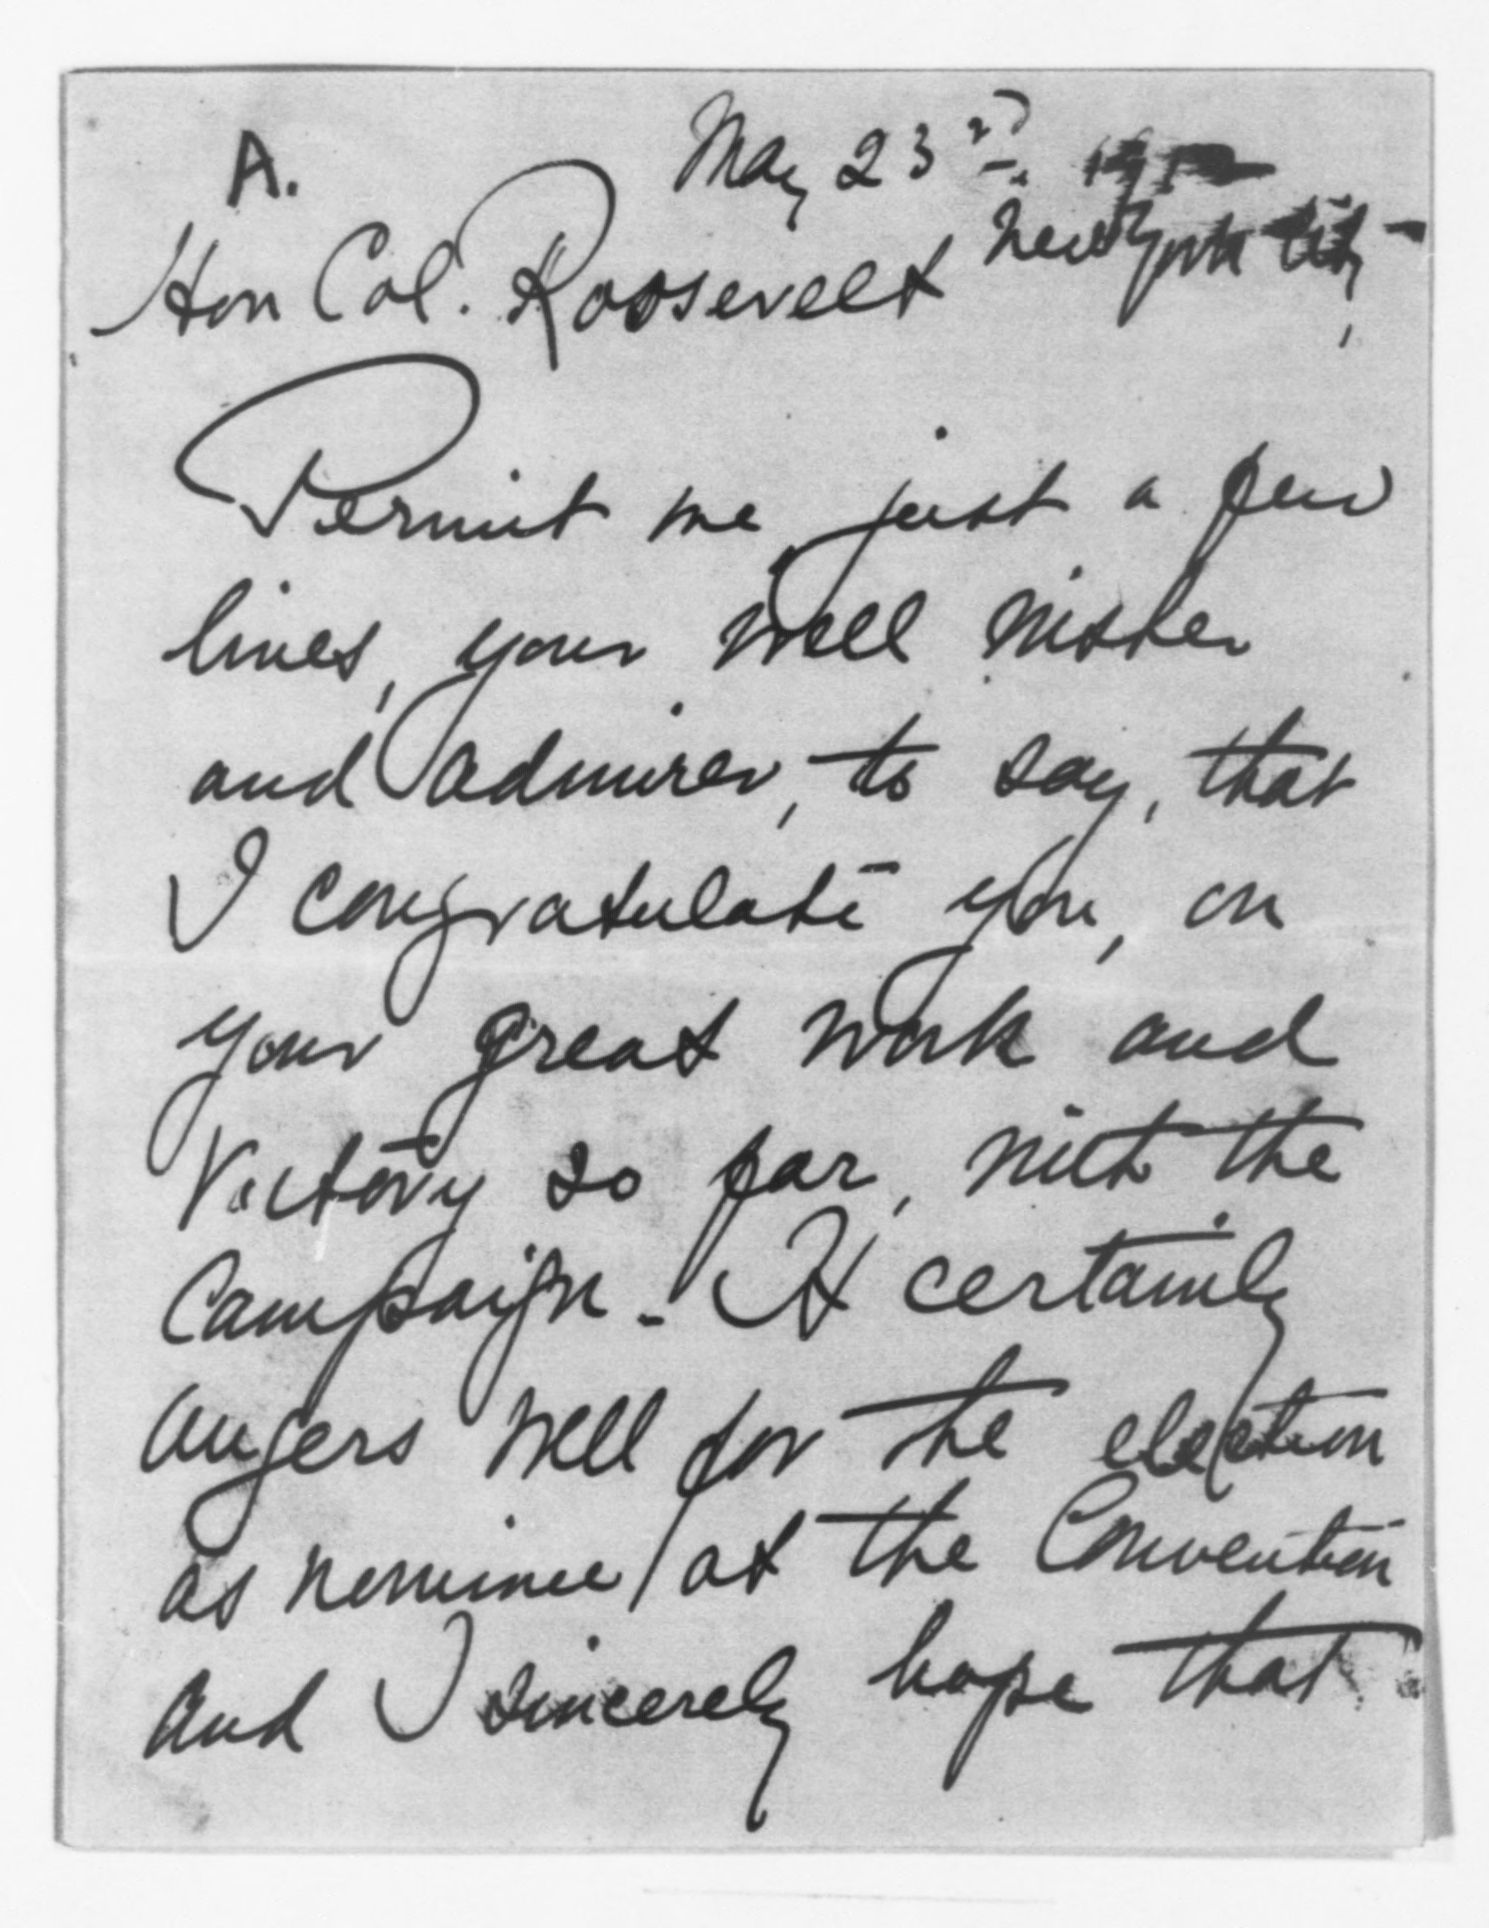 A.
May 23rd. 1912
New York City,
Hon Col. Roosevelt
Permit me just a few
lines, your well wisher
and admirer, to say, that
I congratulate you, on
your great work and
Victory so far, with the
Campaign. It certainly
augers well for the election
as nominee at the Convention
and I sincerely hope that